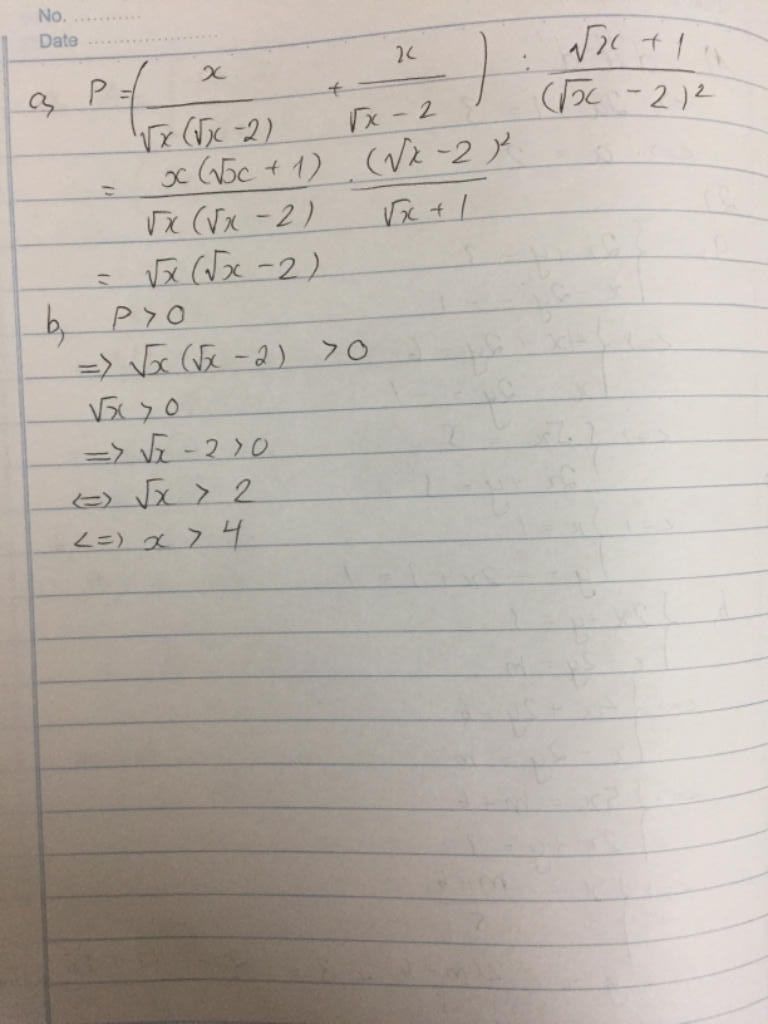 No. ............
Date ........................
a, P = ( x / √x(√x - 2) + x / √x - 2 ) : √x + 1 / (√x - 2)²
= x(√x + 1) / √x(√x - 2) . (√x - 2)² / √x + 1
= √x(√x - 2)
b, P > 0
=> √x(√x - 2) > 0
√x > 0
=> √x - 2 > 0
<=> √x > 2
<=> x > 4